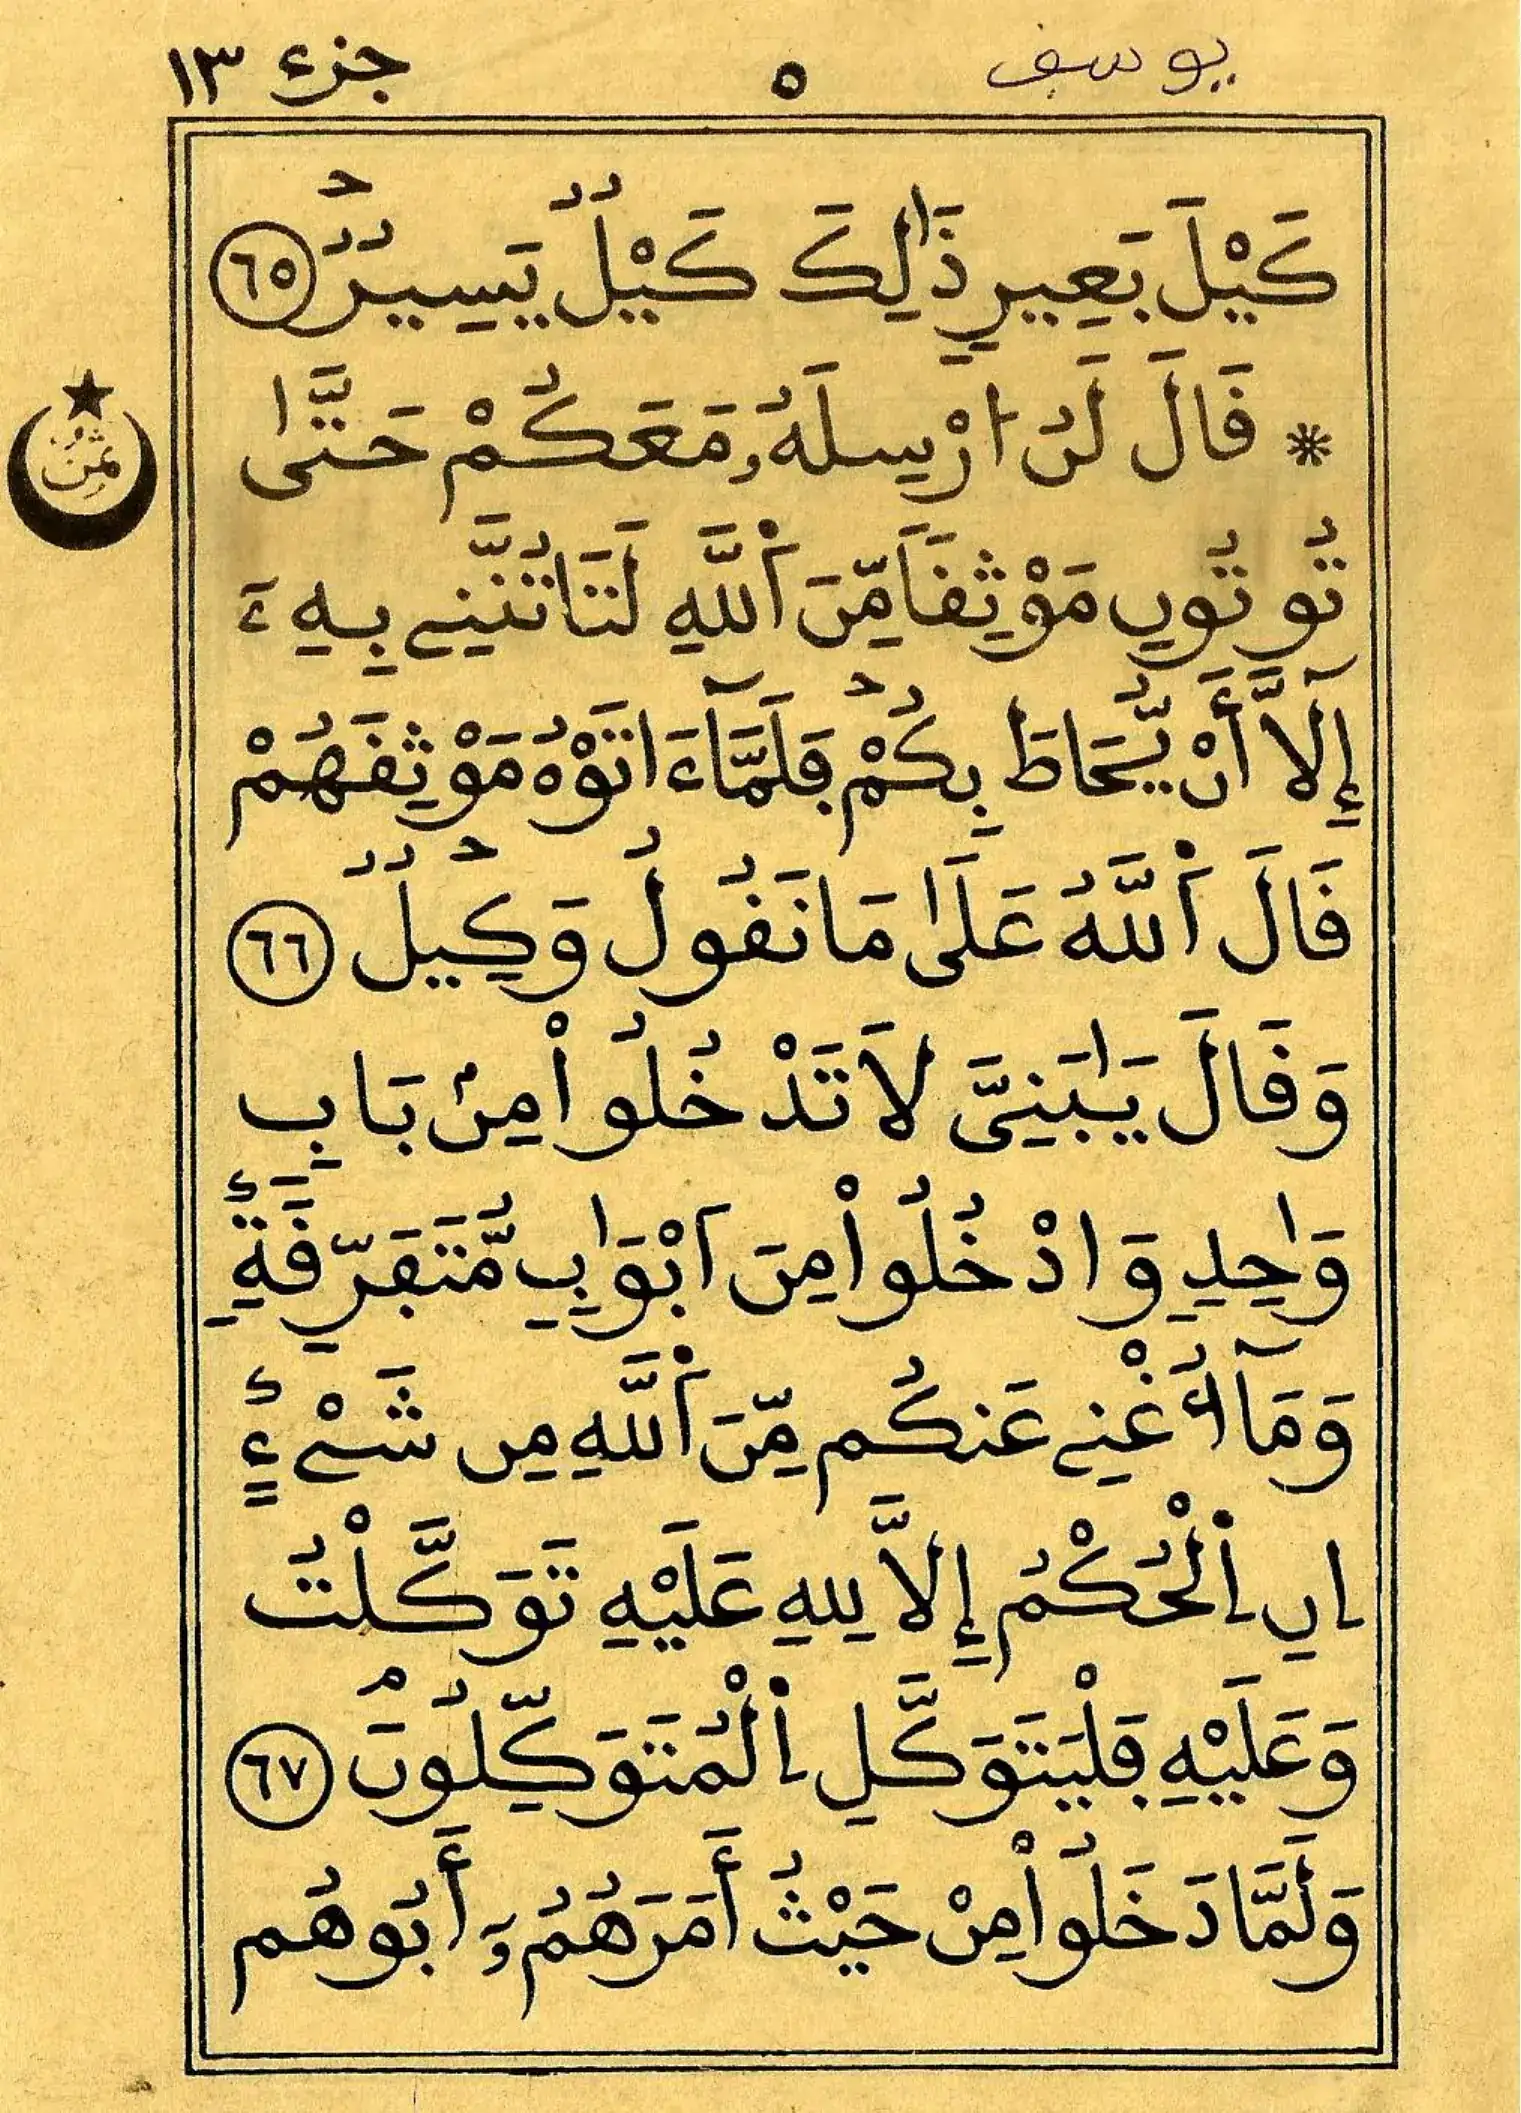 يوسف
٥
جزء ١٣
كَيْلَ بَعِيرٍ ذَٰلِكَ كَيْلٌ يَسِيرٌ ٦٥
* قَالَ لَنُ ا۟رْسِلَهُۥ مَعَكُمْ حَتَّىٰ
ثُمُنُ
تُوتُونِ مَوْثِقاً مِّنَ اَ۬للَّهِ لَتَاتُنَّنِے بِهِۦٓ
إِلَّآ أَنْ يُّحَاطَ بِكُمْ فَلَمَّآ ءَاتَوْهُ مَوْثِقَهُمْ
قَالَ اَ۬للَّهُ عَلَىٰ مَا نَقُولُ وَكِيلٌ ٦٦
وَقَالَ يَٰبَنِيَّ لَا تَدْخُلُوا۟ مِنۢ بَابٍ
وَٰحِدٍ وَادْخُلُوا۟ مِنَ اَبْوَٰبٍ مُّتَفَرِّقَةٍ
وَمَآ أُغْنِے عَنكُم مِّنَ اَ۬للَّهِ مِن شَيْءٍ
اِنِ اِ۬لْحُكْمُ إِلَّا لِلهِ عَلَيْهِ تَوَكَّلْتُ
وَعَلَيْهِ فَلْيَتَوَكَّلِ اِ۬لْمُتَوَكِّلُونَ ٦٧
وَلَمَّا دَخَلُوا۟ مِنْ حَيْثُ أَمَرَهُمُۥٓ أَبُوهُم